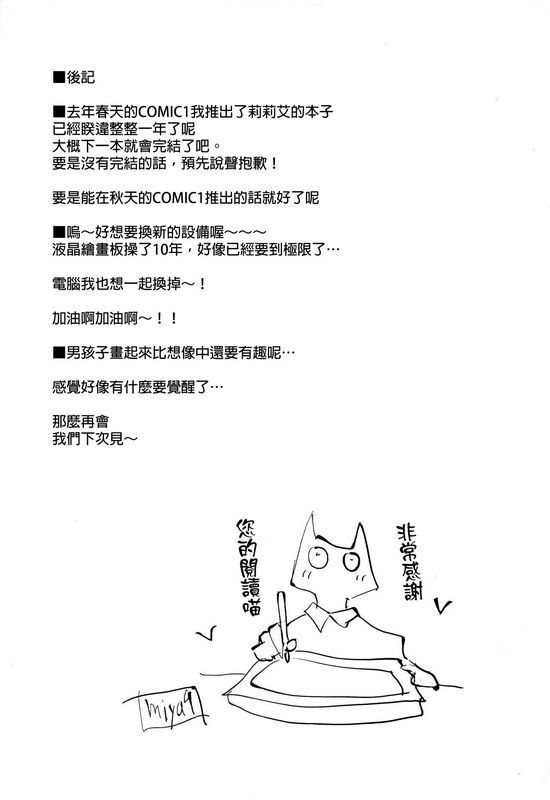 ■後記
■去年春天的COMIC1我推出了莉莉艾的本子
已經睽違整整一年了呢
大概下一本就會完結了吧。
要是沒有完結的話，預先說聲抱歉！
要是能在秋天的COMIC1推出的話就好了呢
■嗚～好想要換新的設備喔～～～
液晶繪畫板操了10年，好像已經要到極限了…
電腦我也想一起換掉～！
加油啊加油啊～！！
■男孩子畫起來比想像中還要有趣呢…
感覺好像有什麼要覺醒了…
那麼再會
我們下次見～
非常感謝
您的閱讀喵
miya9